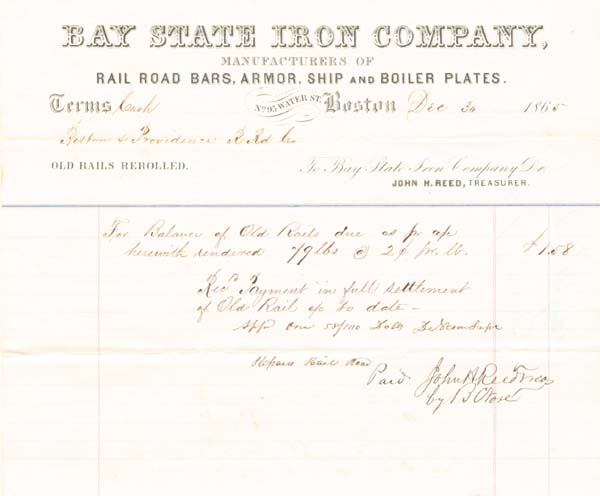 BAY STATE IRON COMPANY,
MANUFACTURERS OF
RAIL ROAD BARS, ARMOR, SHIP AND BOILER PLATES.
Terms Cash No 95 WATER ST. Boston Dec 30 1865
Boston & Providence R Rd Co
OLD RAILS REROLLED. To Bay State Iron Company Dr.
JOHN H. REED, TREASURER.
For Balance of Old Rails due as pr a/c
herewith rendered 79 lbs @ 2¢ pr. lb. $1.58
Rec'd Payment in full settlement
of Old Rail a/c to date -
App One 58/100 Dolls
Repairs Rail Road
Paid John H Reed Treas
by